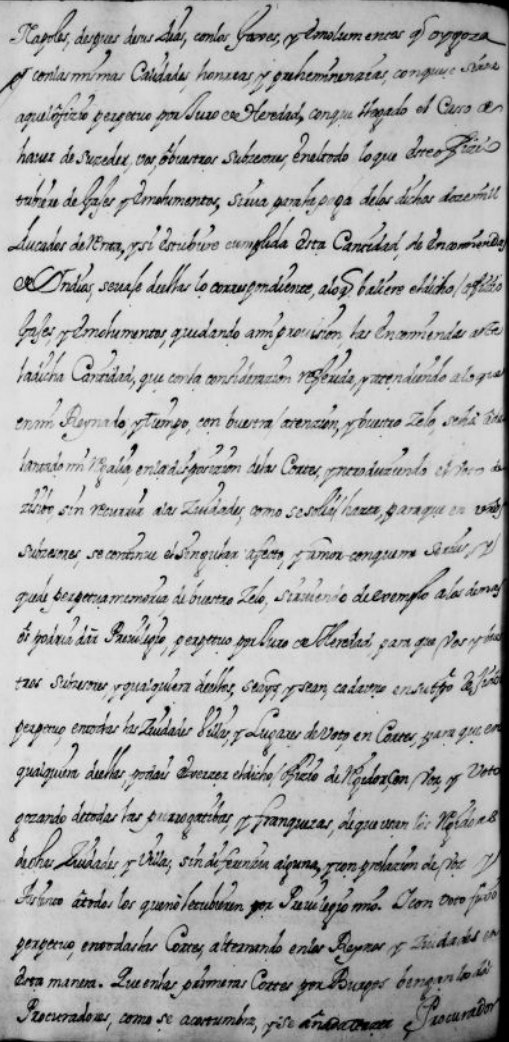 Napoles, despues desus dias, conlos Gaxes, y emolumentos q̃ oy goza
y conlas mismas Calidades, honrras, y prehemineneias, conque se sirve
aquel ofizio perpetuo por Juro de Heredad, conque llegado el Casso de
haver de suzeder, vos, ò buestros subzesores, eneltodo lo que este ofizio
tubiere de Gajes y emolumentos, sirva para la paga delos dichos doze mil
ducados de Renta, y si estubiere cumplida esta Cantidad, de encomiendas
de Indias, sevase deellas lo correspondiente, alo q̃ baliere eldicho ofizio
Gajes, y emolumentos, quedando ami provision, las encomiendas
ladicha Cantidad, que conla considerazion referida, y atendiendo alo que
enmi Reynado, y tiempo, con buestra atenzion, y buestro zelo, seha ade
lantado mi Regalia enla disposizion delas Cortes, yntroduziendo el voto de
zisivo, sin recurrir alas Ziudades, como se solia hazer, paraque en vrõs
subzesores, se continue el singular afecto, y amor conque me servis, y
quede perpetua memoria de buestro zelo, sirviendo de exemplo alos demas
os podria dar Previlegio, perpetuo por Juro de Heredad para que vos y bues
tros subzesores, y qualquiera dellos, seays, y sean, cadauno ensu tpõ Rexidor
perpetuo, entodas las Ziudades Villas, y Lugares de Voto en Cortes, para que en
qualquiera deellas, podais exerzer eldicho ofizio de Regidor, con Voz, y Voto
gozando detodas las prerrogatibas y franquezas, de que usan los Regidores
dedhas Ziudades y Villas, sin diferencia alguna, y con prelazion de Voz y
Assiento âtodos los que nõ letubieren por Previlegio mio. Y con voto
perpetuo, entodas las Cortes, alternando enlos Reynos y Ziudades en
esta manera. Que enlas primeras Cortes por Burgos bengan los dos
Procuradores, como se acostumbra, y se añada terzer Procurador